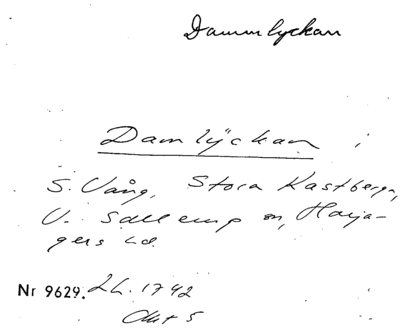 Dammlyckan
Damlyckan i
S. Vång, Stora Kastberga,
V. Sallerup sn, Harja-
gers hd.
Nr 9629. LH. 1742
Akt 5